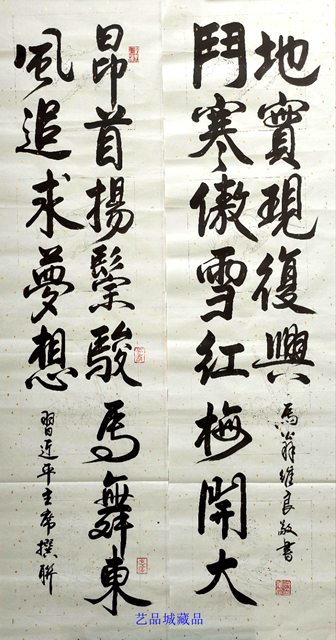 昂首揚鬃駿馬舞東
風追求夢想
習近平主席撰聯
鬥寒傲雪紅梅開大
地實現復興
馬翁維良敬書
艺品城藏品